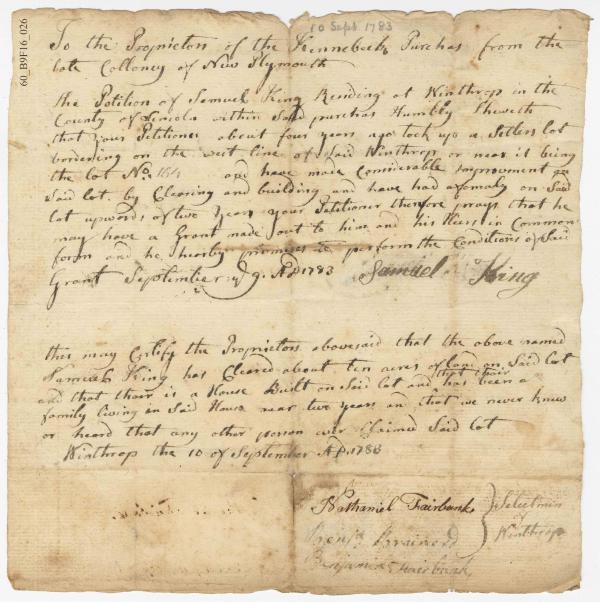 60_B9F16_026
10 Sept. 1783
To the Proprietors of the Kennebeck Purchas from the
late Colloney of New Plymouth
the Petition of Samuel King Reending at Winthrop in the
County of Lincoln within Said purchas Humbly Sheweth
that your Petitioner about four years ago took up a Setlers lot
bordering on the west line of Said Winthrop or near it being
the lot No. and have made Considerable improvement on
Said lot. by Clearing and building and have had a famaly on Said
lot upwords of two Years your Petitioner therefore prays that he
may have a Grant made out to him and his Heirs in Common
form and he hereby promises to perform the Conditions of Said
Grant September ye 9. AD 1783 Samuel King
this may Certify the Proprietors abovesaid that the above named
Samuel King has Cleared about ten acres of land on Said lot
and that thair is a House Built on Said lot and that thair has been a
family living in Said House near two years and that we never knew
or heard that any other person ever Claimed Said lot
Winthrop the 10 of September AD. 1783
Nathaniel Fairbank
Benja Brainerd
Benjamin Fairbank
Selectmin
of
Winthrop